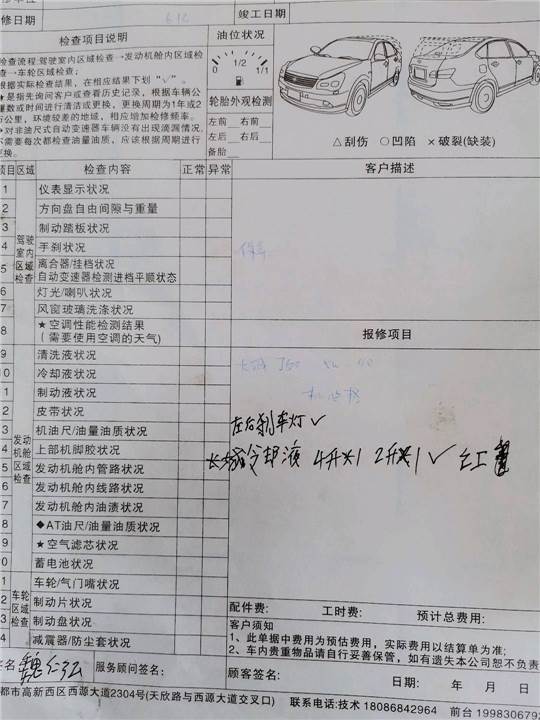 修日期
竣工日期
检查项目说明
油位状况
检查流程:驾驶室内区域检查→发动机舱内区域检
查→车轮区域检查;
根据实际检查结果，在相应结果下划“√”。
★是指先询问客户或查看历史记录，根据车辆公
里数或时间进行清洁或更换，更换周期为1年或2
万公里，环境较差的地域，相应增加检修频率。
◆对非油尺式自动变速器车辆没有出现滴漏情况，
不需要每次都检查油量油质，应该根据周期进行
更换。
0 1/2 1/1
轮胎外观检测
左前 右前
左后 右后
备胎
△刮伤 ○凹陷 ×破裂(缺装)
项目 区域 检查内容 正常 异常
客户描述
驾驶室内区域检查
1 仪表显示状况
2 方向盘自由间隙与重量
3 制动踏板状况
4 手刹状况
5 离合器/挂档状况
自动变速器检测进档平顺状态
6 灯光/喇叭状况
7 风窗玻璃洗涤状况
8 ★空调性能检测结果
(需要使用空调的天气)
报修项目
发动机舱区域检查
9 清洗液状况
0 冷却液状况
1 制动液状况
2 皮带状况
3 机油尺/油量油质状况
左后刹车灯√
4 上部机脚胶状况
长城冷却液 4升×1 2升×1√ 红
5 发动机舱内管路状况
6 发动机舱内线路状况
7 发动机舱内油渍状况
8 ◆AT油尺/油量油质状况
9 ★空气滤芯状况
0 蓄电池状况
车轮区域检查
1 车轮/气门嘴状况
2 制动片状况
3 制动盘状况
4 减震器/防尘套状况
配件费: 工时费: 预计总费用:
客户须知
1、此单据中费用为预估费用，实际费用以结算单为准;
2、车内贵重物品请自行妥善保管，如有遗失本公司恕不负责
签名: 服务顾问签名: 顾客签名: 日期: 年 月 日
都市高新西区西源大道2304号(天欣路与西源大道交叉口) 联系电话:技术 18086842964 前台 199830679